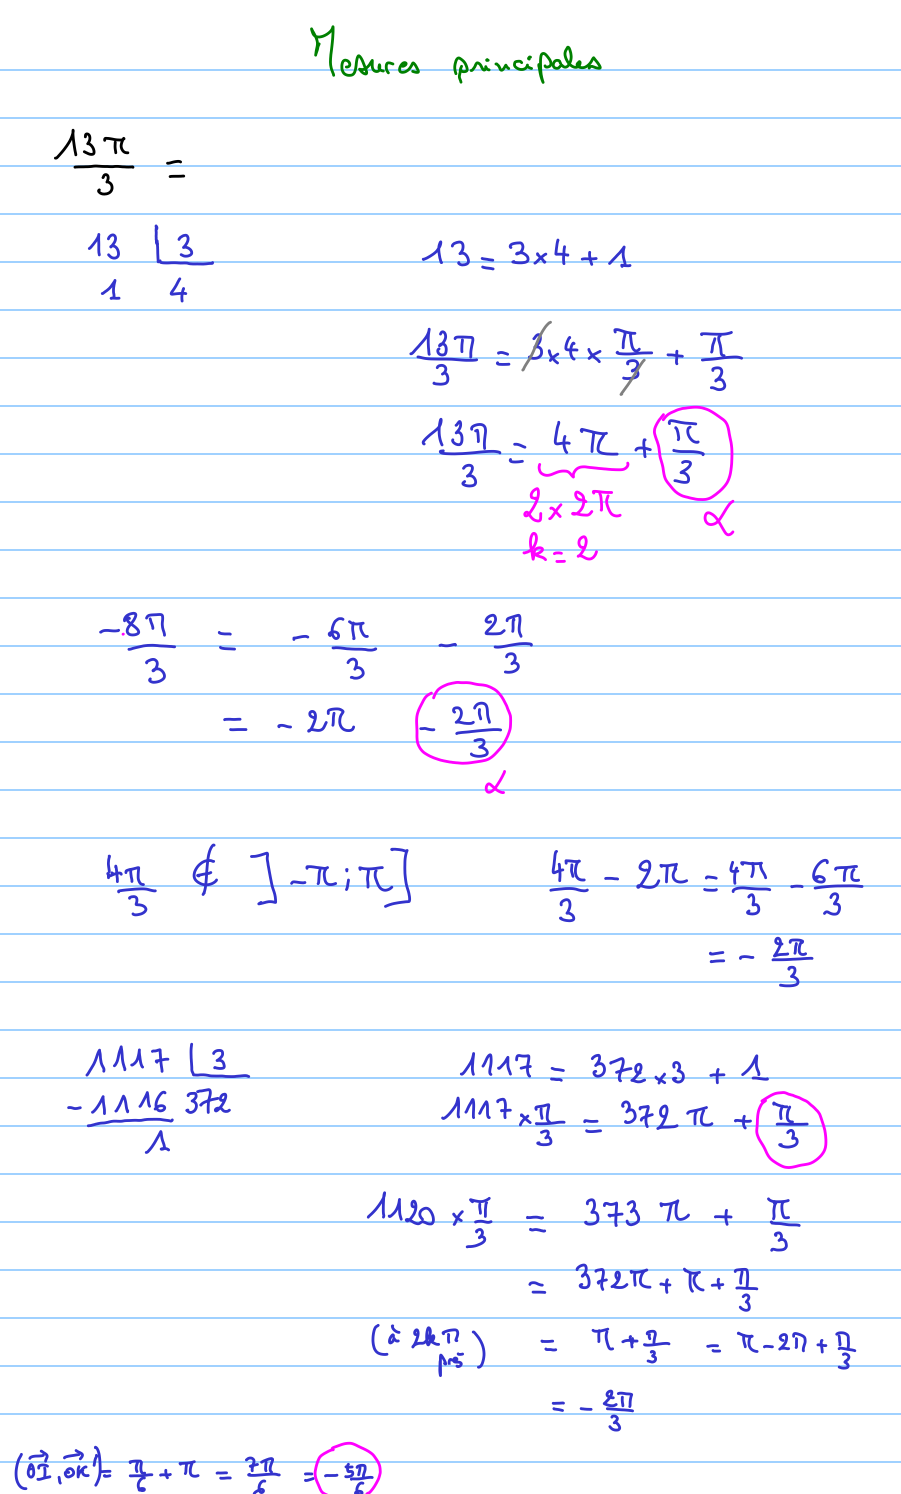 Mesures principales
13π/3 =
13 | 3
1 4
13 = 3×4 + 1
13π/3 = 3×4 × π/3 + π/3
13π/3 = 4π + π/3
2 × 2π α
k = 2
-8π/3 = - 6π/3 - 2π/3
= - 2π - 2π/3
α
4π/3 ∉ ]-π ; π]
4π/3 - 2π = 4π/3 - 6π/3
= - 2π/3
1117 | 3
- 1116 372
1
1117 = 372×3 + 1
1117 × π/3 = 372 π + π/3
1120 × π/3 = 373 π + π/3
= 372π + π + π/3
(à 2kπ près) = π + π/3 = π - 2π + π/3
= - 2π/3
(OI→, OK'→) = π/6 + π = 7π/6 = - 5π/6